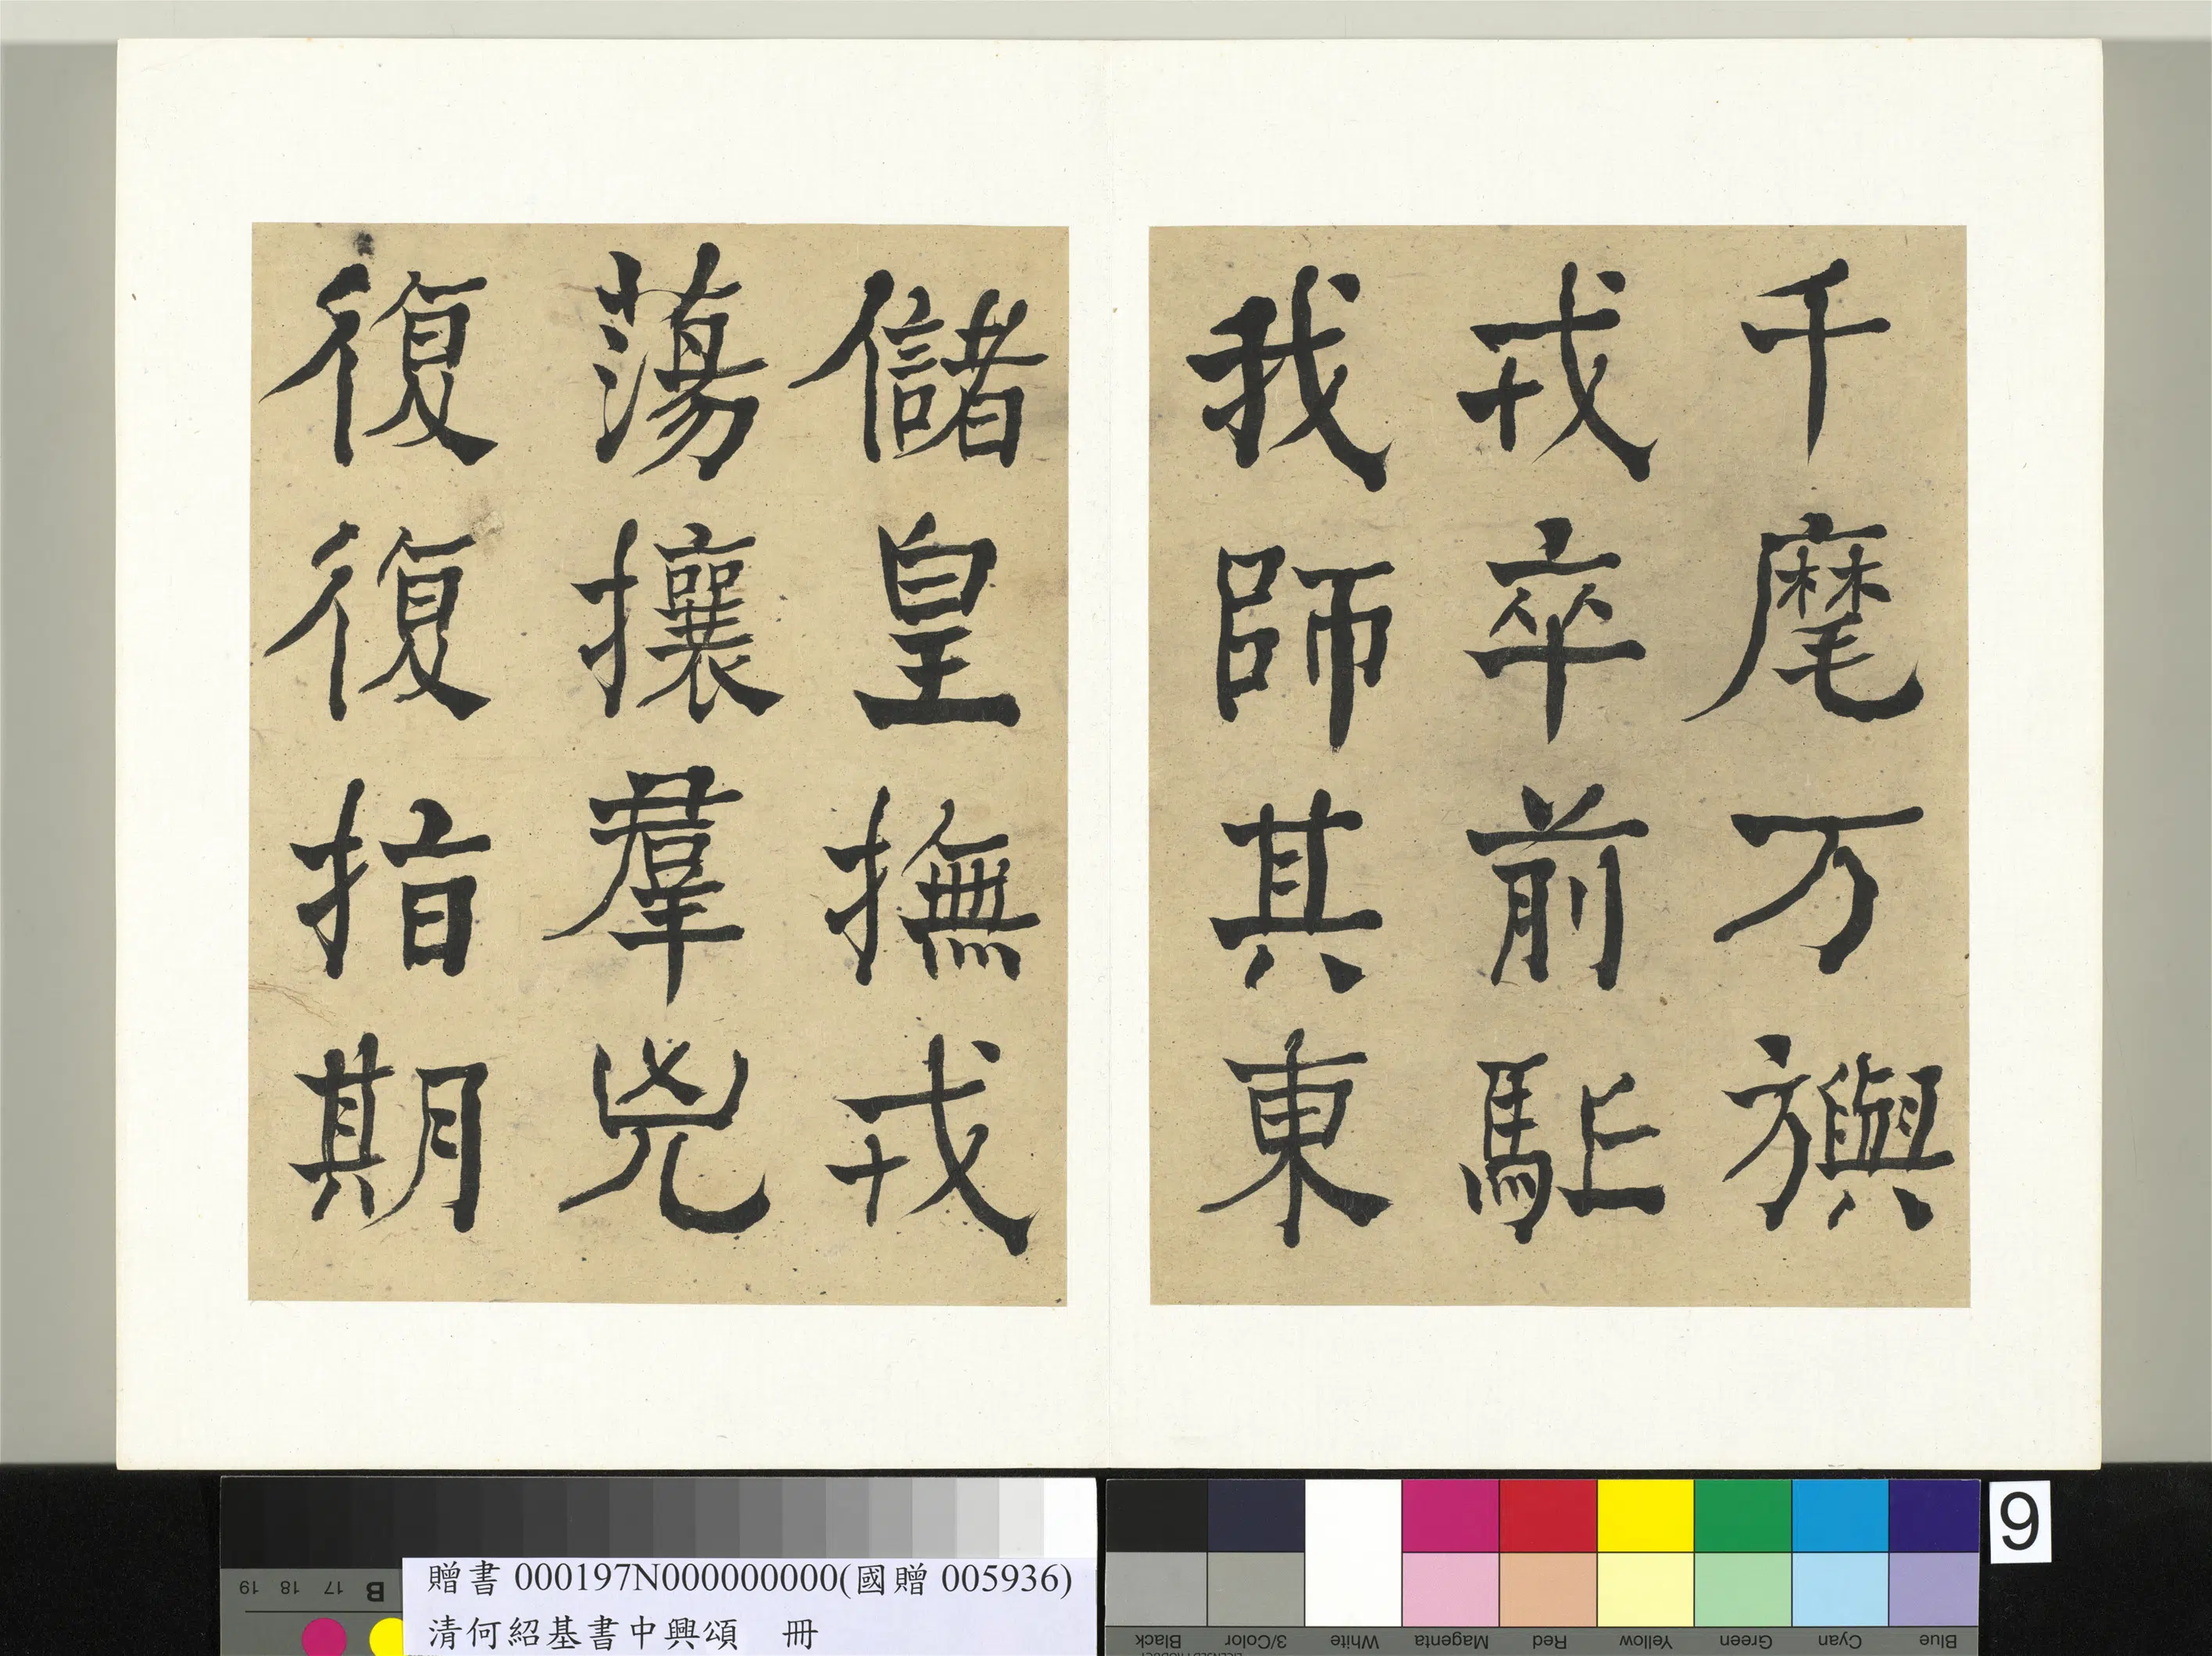 千麾万旟
戎卒前駈
我師其東
儲皇撫戎
蕩攘羣兇
復復指期
9
贈書 000197N000000000(國贈 005936)
清何紹基書中興頌　冊
19 18 17 B
Black 3/Color White Magenta Red Yellow Green Cyan Blue